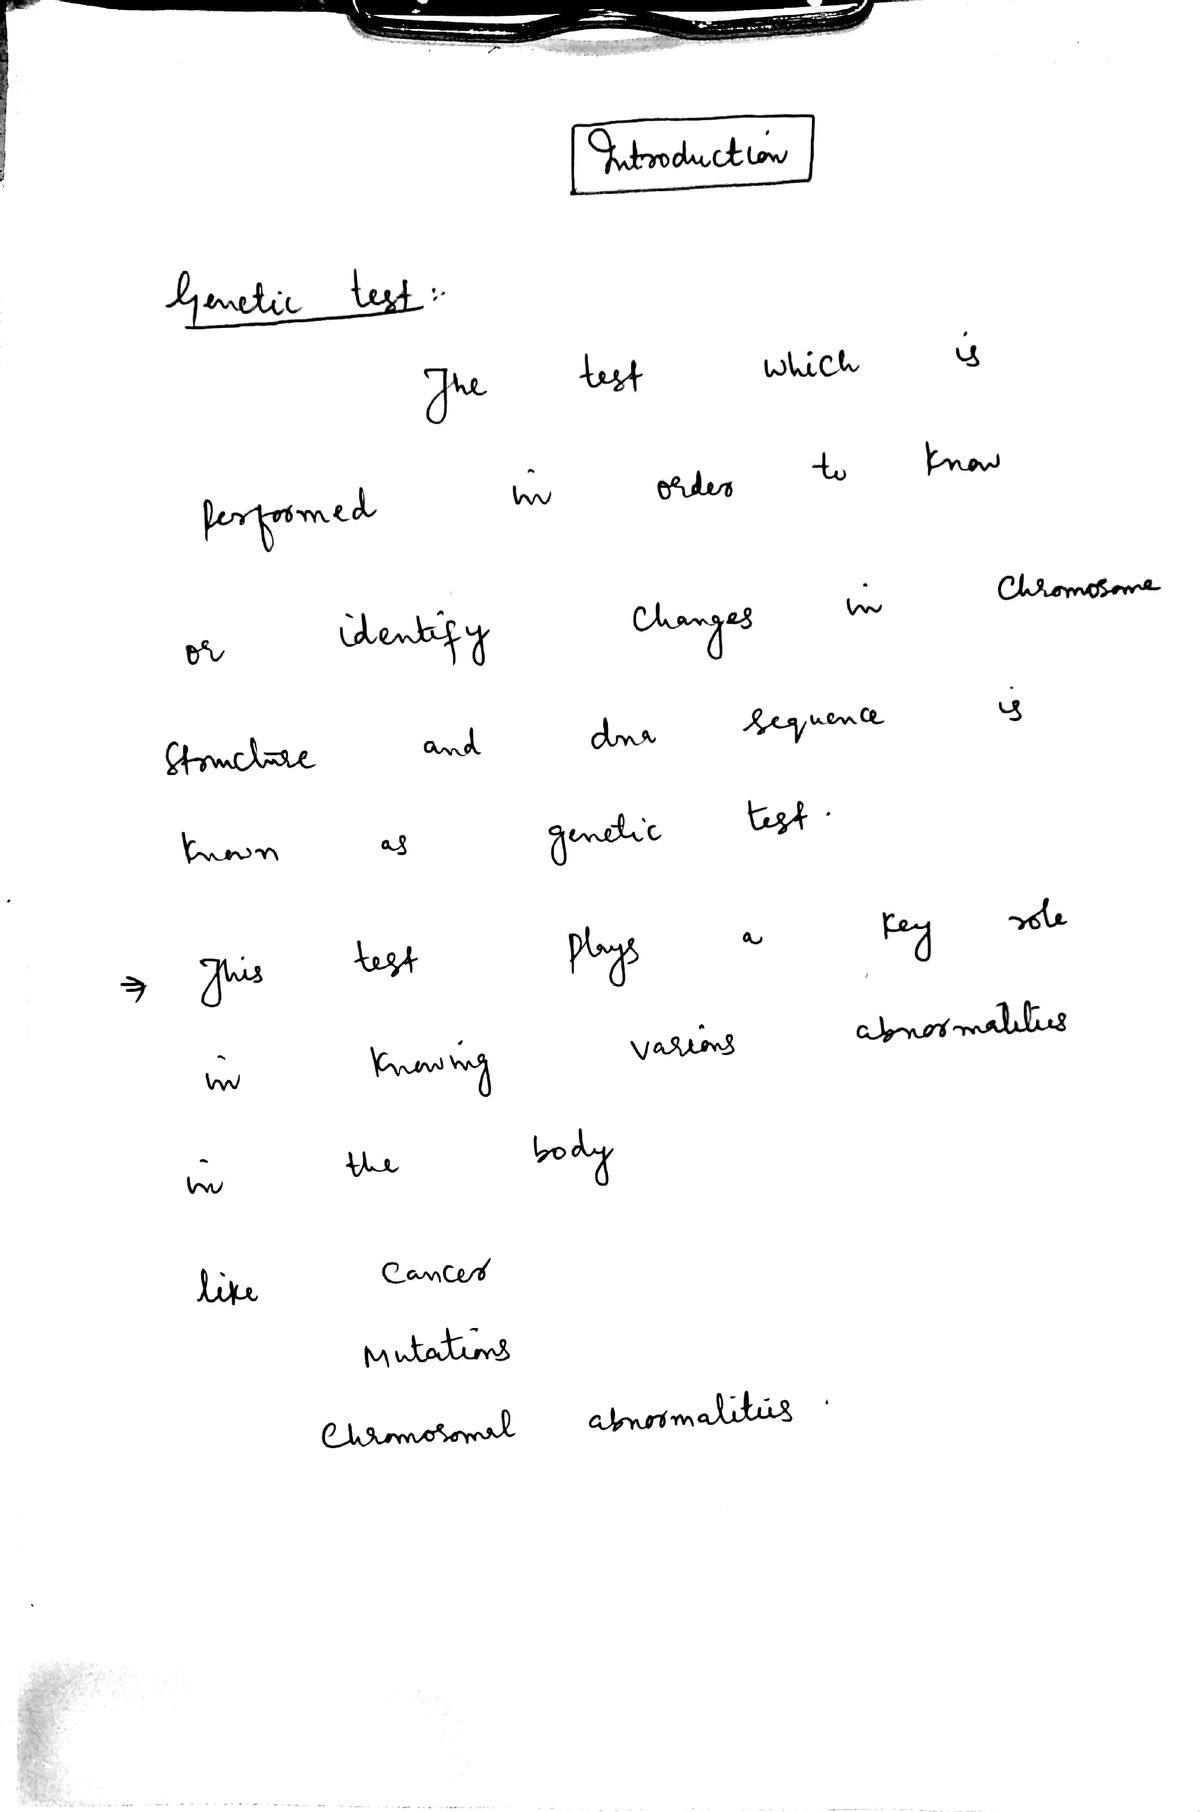 Introduction
Genetic test :-
The test which is
Performed in order to know
or identify changes in Chromosome
Structure and dna sequence is
known as genetic test.
⇒ This test plays a key role
in knowing various abnormalities
in the body
like Cancer
Mutations
Chromosomal abnormalities.